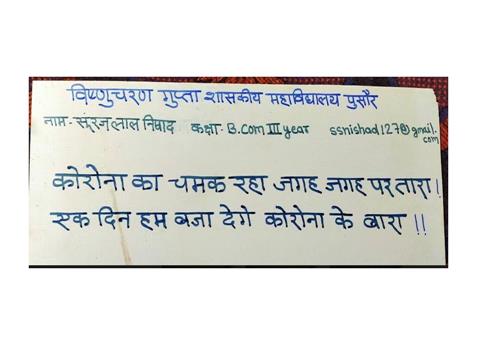 विष्णुचरण गुप्ता शासकीय महाविद्यालय पुसौर
नाम - सूरजलाल निषाद कक्षा - B.Com III year ssnishad127@gmail.com
कोरोना का चमक रहा जगह जगह पर तारा !
एक दिन हम बजा देगे कोरोना के बारा !!